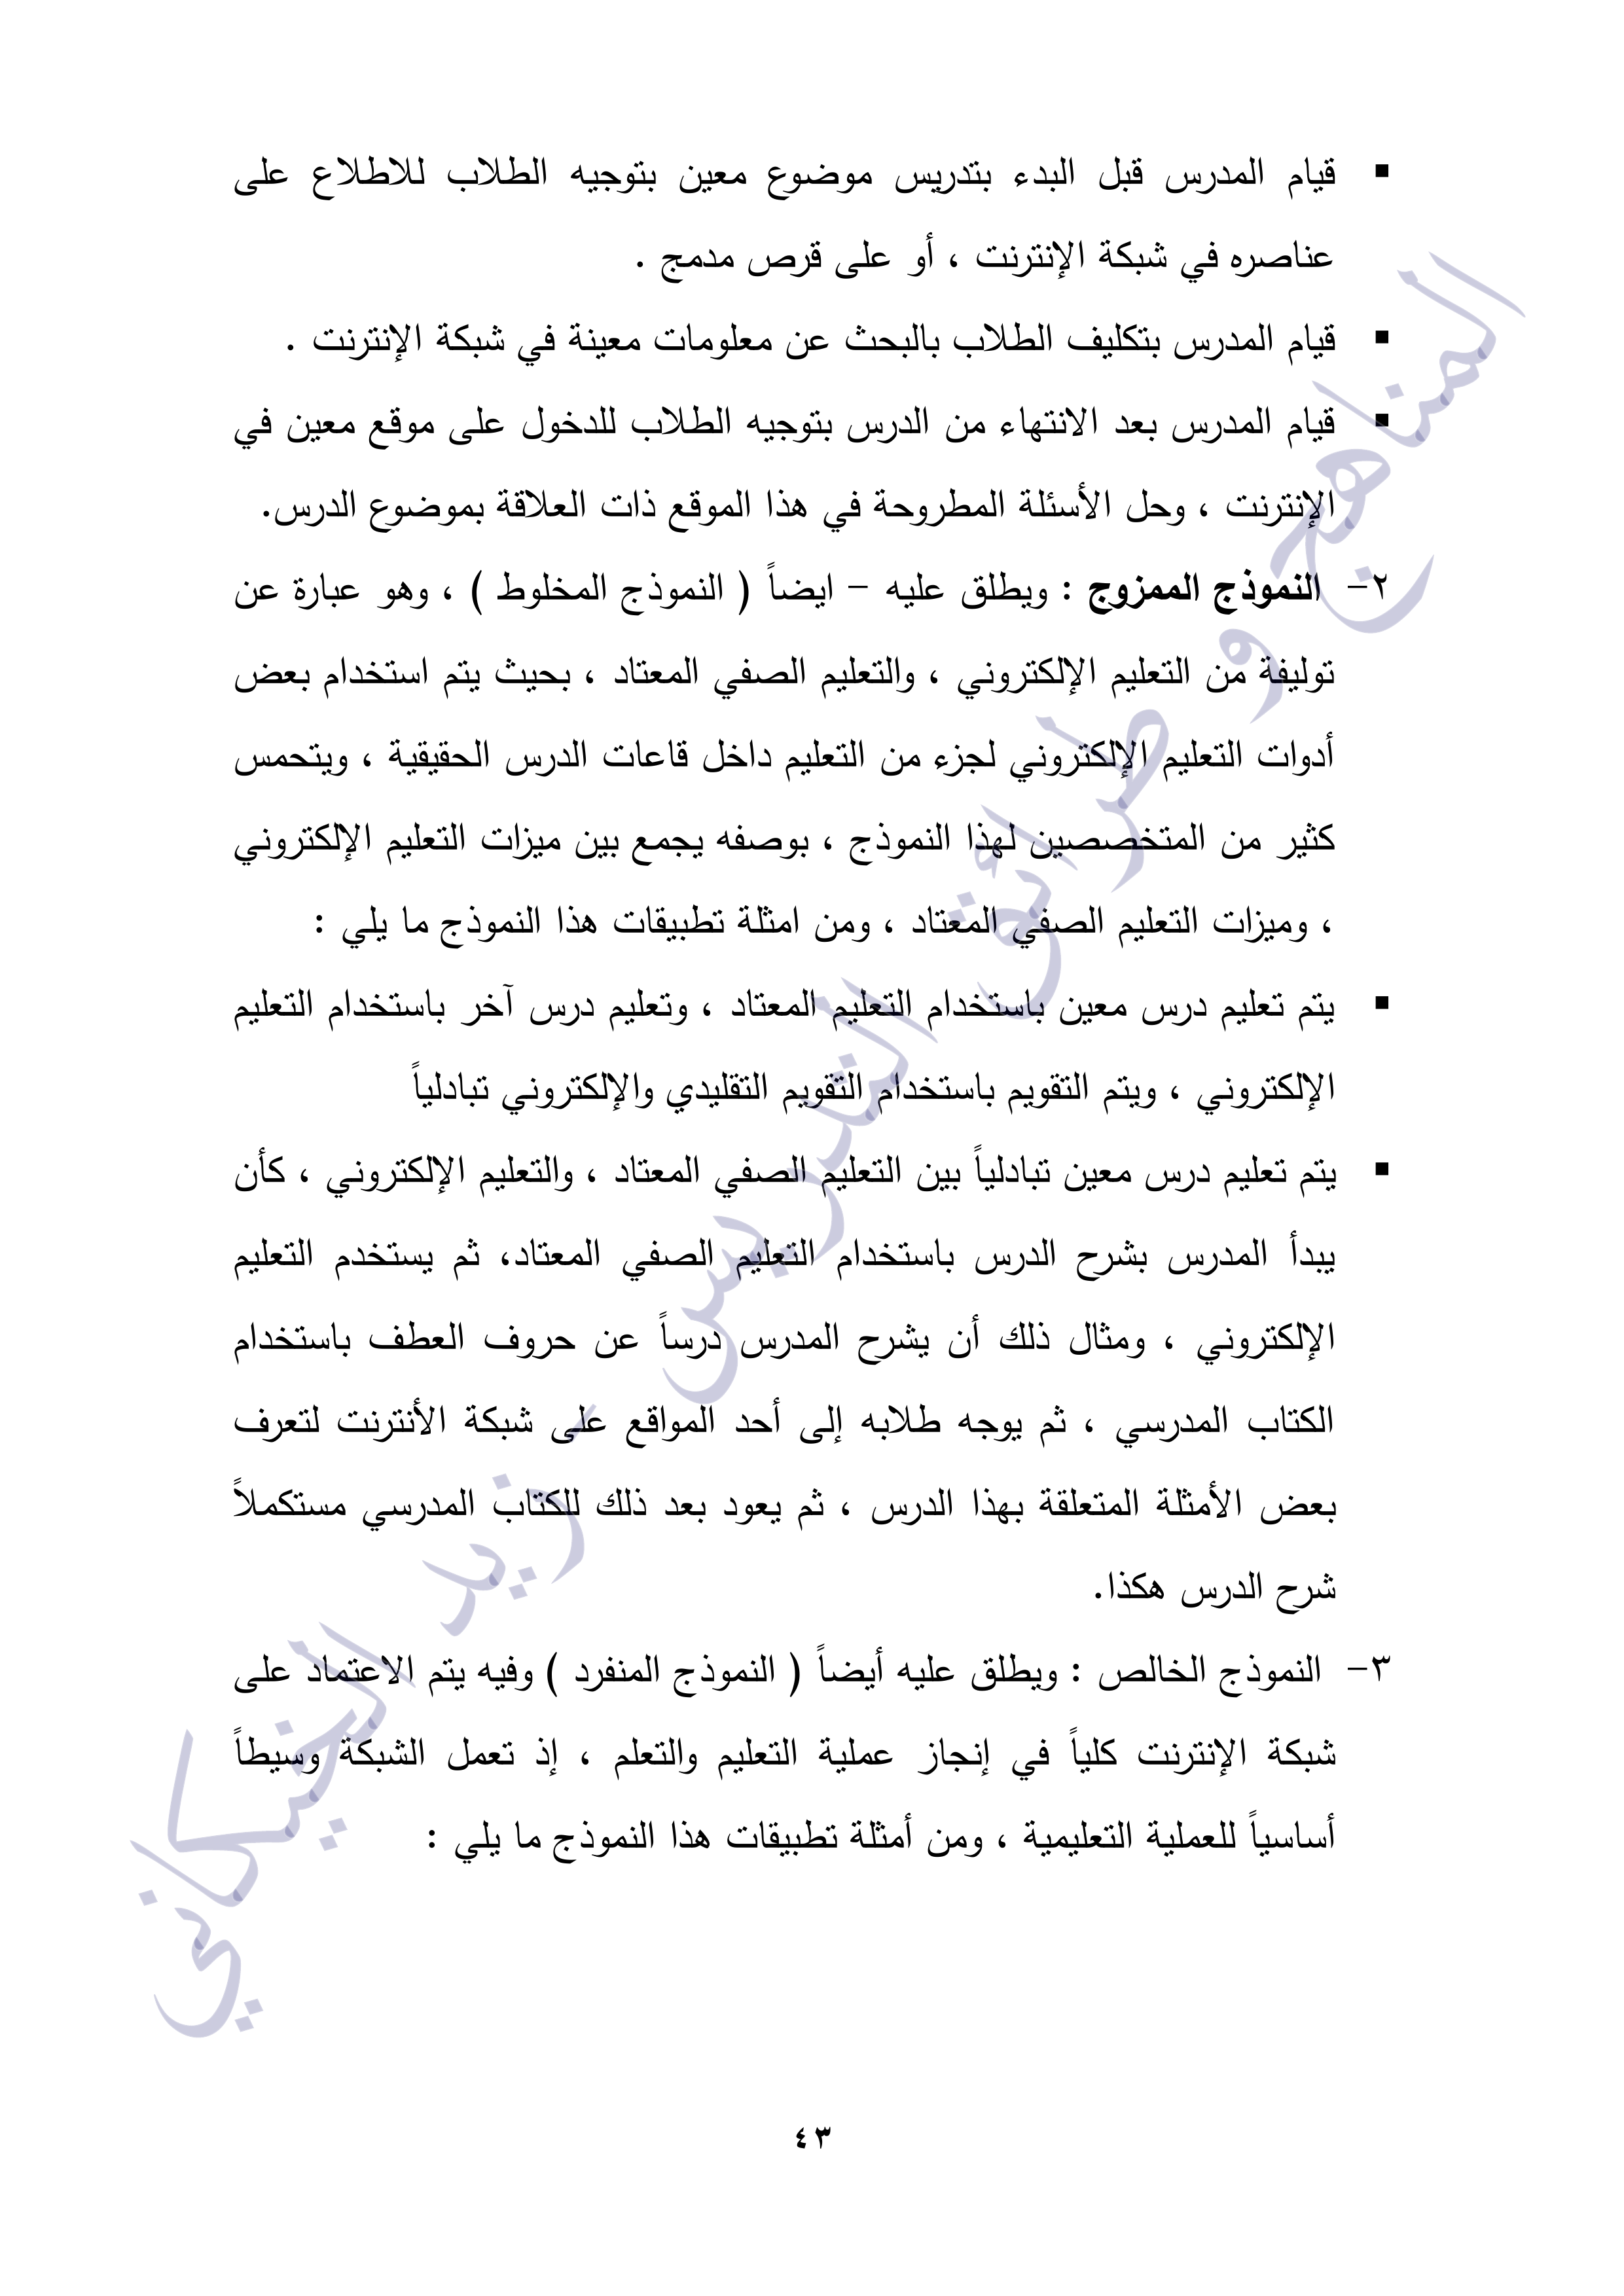 ▪ قيام المدرس قبل البدء بتدريس موضوع معين بتوجيه الطلاب للاطلاع على
عناصره في شبكة الإنترنت ، أو على قرص مدمج .
▪ قيام المدرس بتكليف الطلاب بالبحث عن معلومات معينة في شبكة الإنترنت .
▪ قيام المدرس بعد الانتهاء من الدرس بتوجيه الطلاب للدخول على موقع معين في
الإنترنت ، وحل الأسئلة المطروحة في هذا الموقع ذات العلاقة بموضوع الدرس.
٢- النموذج الممزوج : ويطلق عليه – ايضاً ( النموذج المخلوط ) ، وهو عبارة عن
توليفة من التعليم الإلكتروني ، والتعليم الصفي المعتاد ، بحيث يتم استخدام بعض
أدوات التعليم الإلكتروني لجزء من التعليم داخل قاعات الدرس الحقيقية ، ويتحمس
كثير من المتخصصين لهذا النموذج ، بوصفه يجمع بين ميزات التعليم الإلكتروني
، وميزات التعليم الصفي المعتاد ، ومن امثلة تطبيقات هذا النموذج ما يلي :
▪ يتم تعليم درس معين باستخدام التعليم المعتاد ، وتعليم درس آخر باستخدام التعليم
الإلكتروني ، ويتم التقويم باستخدام التقويم التقليدي والإلكتروني تبادلياً
▪ يتم تعليم درس معين تبادلياً بين التعليم الصفي المعتاد ، والتعليم الإلكتروني ، كأن
يبدأ المدرس بشرح الدرس باستخدام التعليم الصفي المعتاد، ثم يستخدم التعليم
الإلكتروني ، ومثال ذلك أن يشرح المدرس درساً عن حروف العطف باستخدام
الكتاب المدرسي ، ثم يوجه طلابه إلى أحد المواقع على شبكة الأنترنت لتعرف
بعض الأمثلة المتعلقة بهذا الدرس ، ثم يعود بعد ذلك للكتاب المدرسي مستكملاً
شرح الدرس هكذا.
٣- النموذج الخالص : ويطلق عليه أيضاً ( النموذج المنفرد ) وفيه يتم الاعتماد على
شبكة الإنترنت كلياً في إنجاز عملية التعليم والتعلم ، إذ تعمل الشبكة وسيطاً
أساسياً للعملية التعليمية ، ومن أمثلة تطبيقات هذا النموذج ما يلي :
المناهج و طرائق التدريس - زيد الخيكاني
٤٣